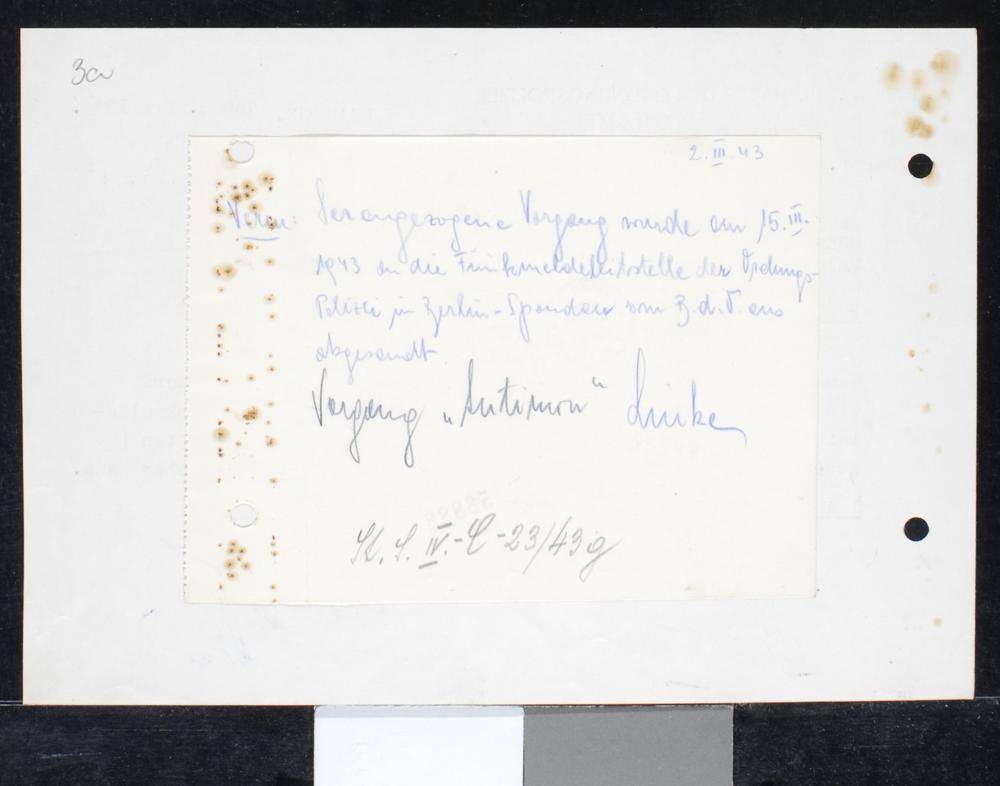 3a
2.III.43
Verm: Der angezogene Vorgang wurde am 15.III.
1943 an die Funkmeldeleitstelle der Ordnungs-
Polizei in Berlin-Spandau vom B.d.O. aus
abgesandt.
Vorgang „Antimon" Linke
IV.-C-23/43g